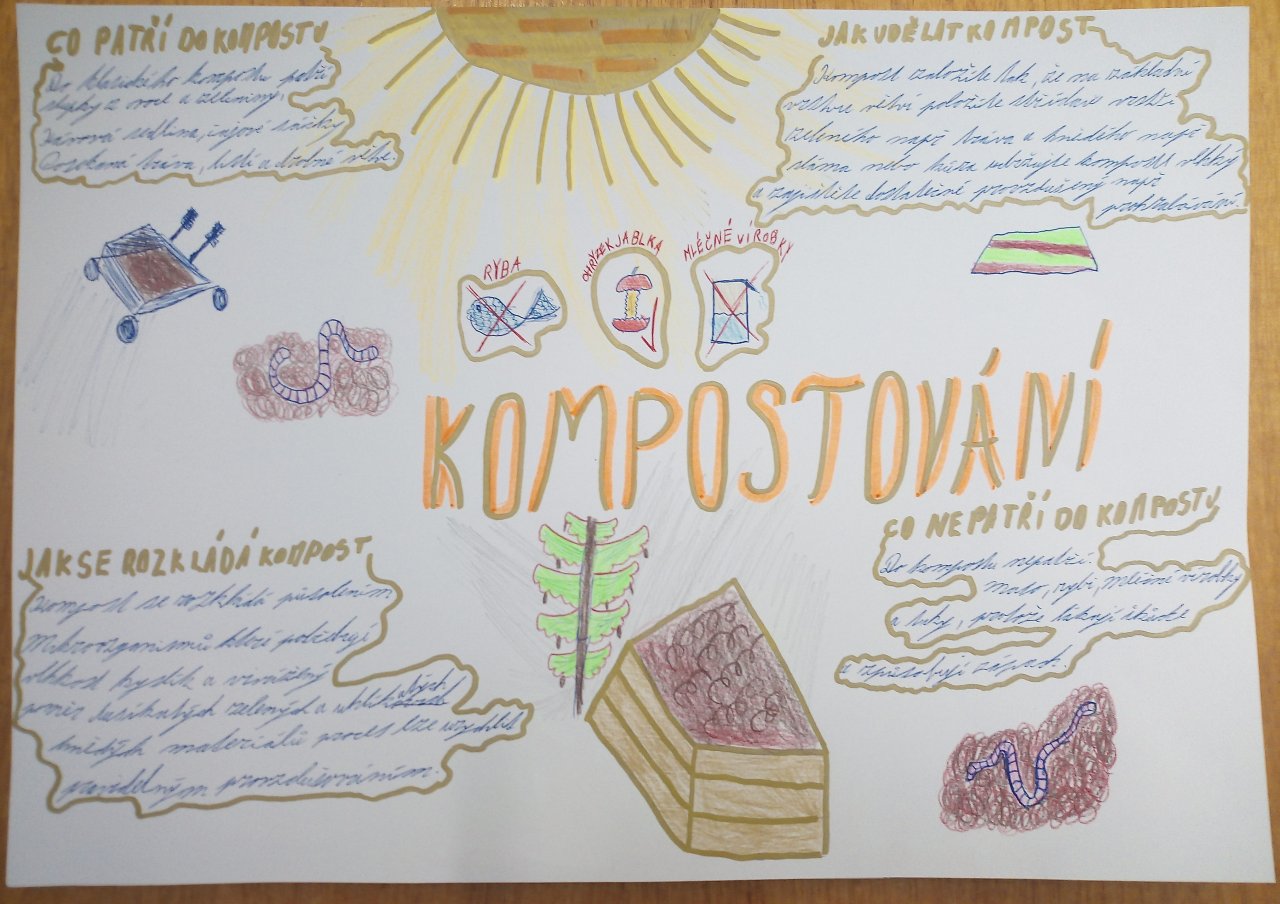 CO PATŘÍ DO KOMPOSTU
Do klasického kompostu patří
slupky z ovoce a zeleniny,
kávová sedlina, čajové sáčky
Posekaná tráva, listí a drobné větve.
JAK UDĚLAT KOMPOST
Kompost založíte tak, že na základní
vrstvu větví položíte střídavě vrstvy
zeleného např tráva a hnědého např
sláma nebo kůra udržujte kompost vlhký
a zajistěte dostatečné provzdušený např
prohrabávání.
RYBA
OHRYZEK JABLKA
MLÉČNÉ VÍROBKY
KOMPOSTOVÁNÍ
JAK SE ROZKLÁDÁ KOMPOST
Kompost se rozkládá působením
Mikroorganismů které potřebují
vlhkost kyslík a vyvážený
poměr dusíkatých zelených a uhlíkatých
hnědých materiálů proces lze urychlit
pravidelným provzdušňováním.
CO NEPATŘÍ DO KOMPOSTU
Do kompostu nepatří:
maso, ryby, mléčné výrobky
a tuky, protože lákají škůdce
a způsobují zápach.